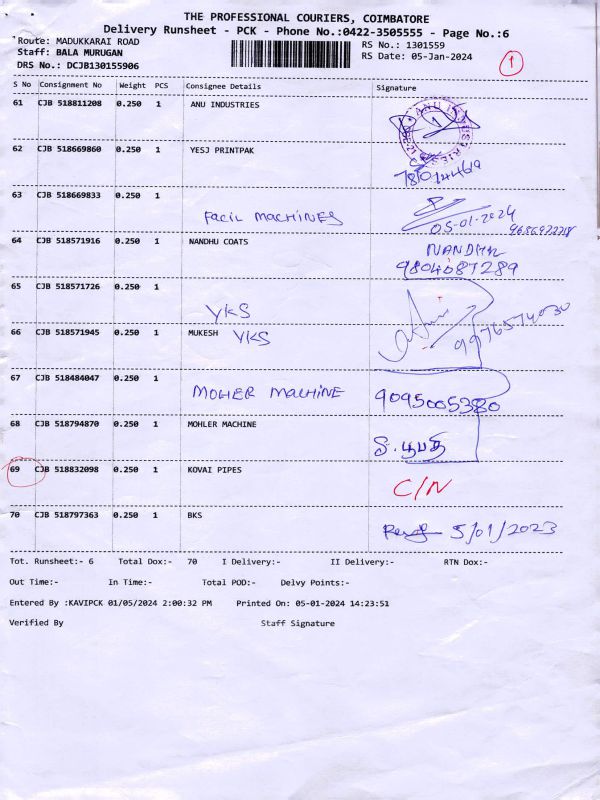 THE PROFESSIONAL COURIERS, COIMBATORE
Delivery Runsheet - PCK - Phone No.:0422-3505555 - Page No.:6
Route: MADUKKARAI ROAD
RS No.: 1301559
Staff: BALA MURUGAN
RS Date: 05-Jan-2024
1
DRS No.: DCJB130155906
S No Consignment No Weight PCS Consignee Details Signature
61 CJB 518811208 0.250 1 ANU INDUSTRIES
62 CJB 518669860 0.250 1 YESJ PRINTPAK
63 CJB 518669833 0.250 1
FACIL MACHINES 05-01-2024
64 CJB 518571916 0.250 1 NANDHU COATS
9804687289
65 CJB 518571726 0.250 1
YKS
9976574030
66 CJB 518571945 0.250 1 MUKESH YKS
67 CJB 518484047 0.250 1
MOHER MACHINE 9095005380
68 CJB 518794870 0.250 1 MOHLER MACHINE
69 CJB 518832098 0.250 1 KOVAI PIPES
C/N
70 CJB 518797363 0.250 1 BKS
5/01/2023
Tot. Runsheet:- 6 Total Dox:- 70 I Delivery:- II Delivery:- RTN Dox:-
Out Time:- In Time:- Total POD:- Delvy Points:-
Entered By :KAVIPCK 01/05/2024 2:00:32 PM Printed On: 05-01-2024 14:23:51
Verified By Staff Signature